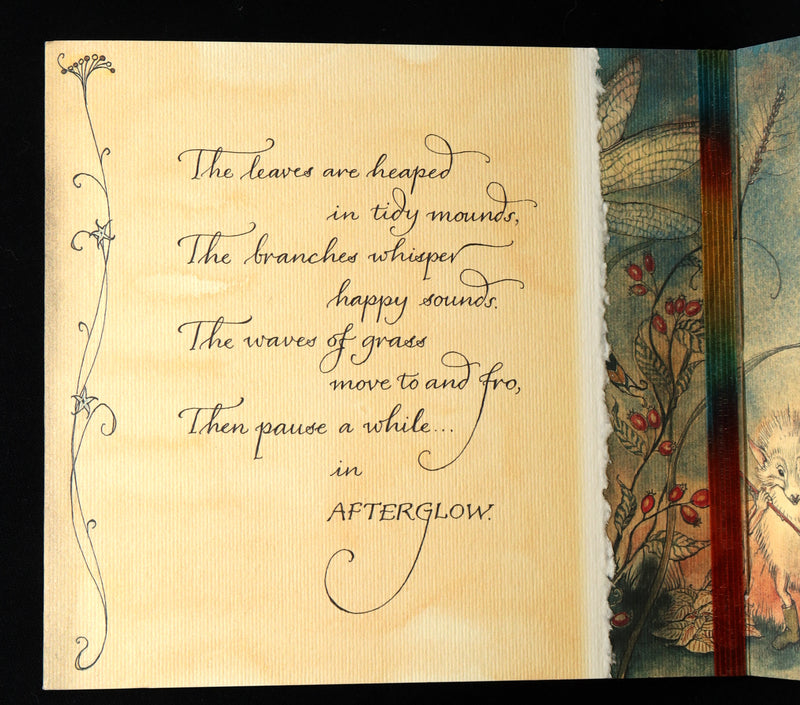 The leaves are heaped
in tidy mounds,
The branches whisper
happy sounds.
The waves of grass
move to and fro,
Then pause a while...
in
AFTERGLOW.